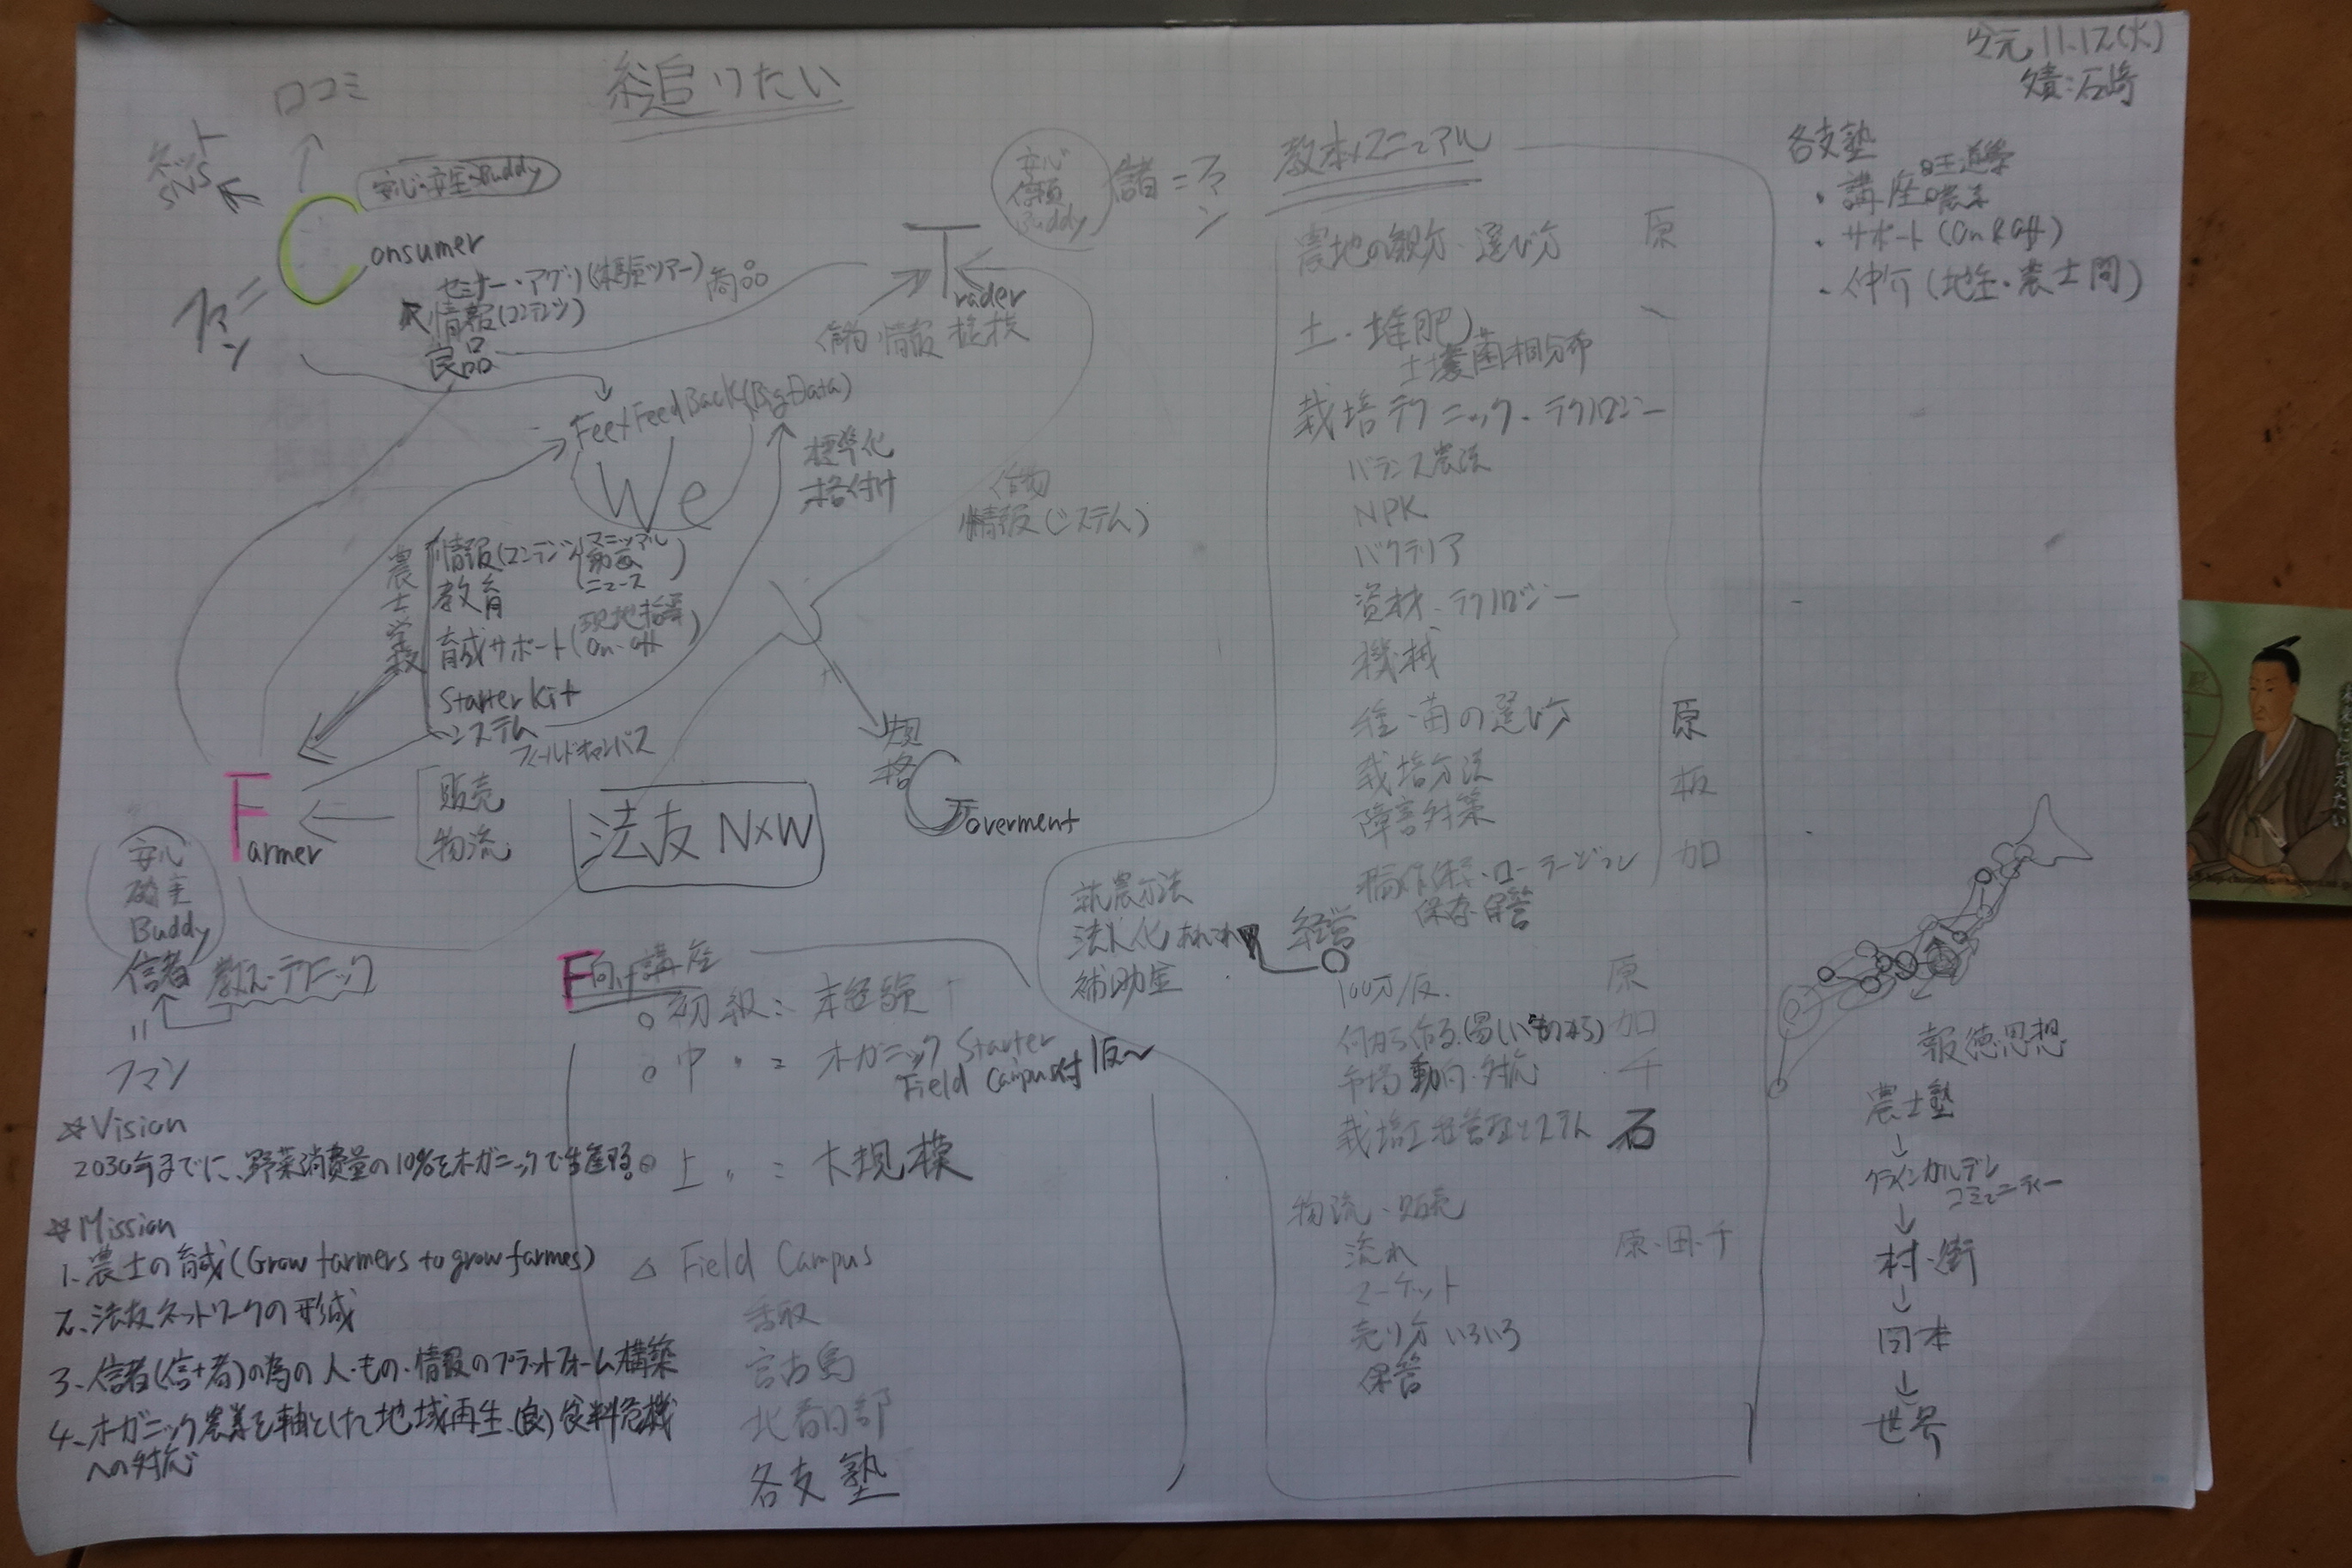 口コミ
ネット
SNS
安心・安全・Buddy
Consumer
ファン
セミナー・アグリ(体験ツアー)
情報(コンテンツ)
良品
商品
11.17(火)
文責:石崎
安心
信頼
Buddy
儲=ファン
Trader
作物 情報
Fee×FeedBack(BigData)
We
標準化
格付け
作物
情報(システム)
農士学校
情報(コンテンツ(マニュアル
動画
ニュース)
教育
育成サポート(現地指導
On・off)
Starter Kit
システム
フィールドキャンパス
販売
物流
Farmer
法友 N×W
規格
Goverment
安心
確実
Buddy
信者 教え・テクニック
=
ファン
☆Vision
2030年までに、野菜消費量の10%をオーガニックで生産する。
☆Mission
1. 農士の育成(Grow farmers to grow farmes)
2. 法友ネットワークの形成
3. 信者(信+者)の為の人・もの・情報のプラットフォーム構築
4. オーガニック農業を軸とした地域再生、(良)食料危機
への対応
F向け講座
○初級: 未経験
○中 〃 = オーガニック Starter
Field Campus付 1反〜
◎上 〃 = 大規模
△ Field Campus
香取
宮古島
北春日部
各支塾
教本・マニュアル
農地の観方・選び方 原
土・堆肥
土壌菌相分布
栽培テクニック・テクノロジー
バランス農法
NPK
バクテリア
資材・テクノロジー
機械
種・苗の選び方 原
栽培方法 板
障害対策
加
保存・保管
就農方法
法人化
補助金
経営
100万/反 原
何から作る(易しいものから) 加
市場動向・対応 千
石
物流・販売
流れ 原・田・千
マーケット
売り方いろいろ
保管
各支塾
・講座
・サポート(On & Off)
・仲介(地主・農士間)
報徳思想
農士塾
↓
クラインガルデン
コミュニティー
↓
村・街
↓
日本
↓
世界